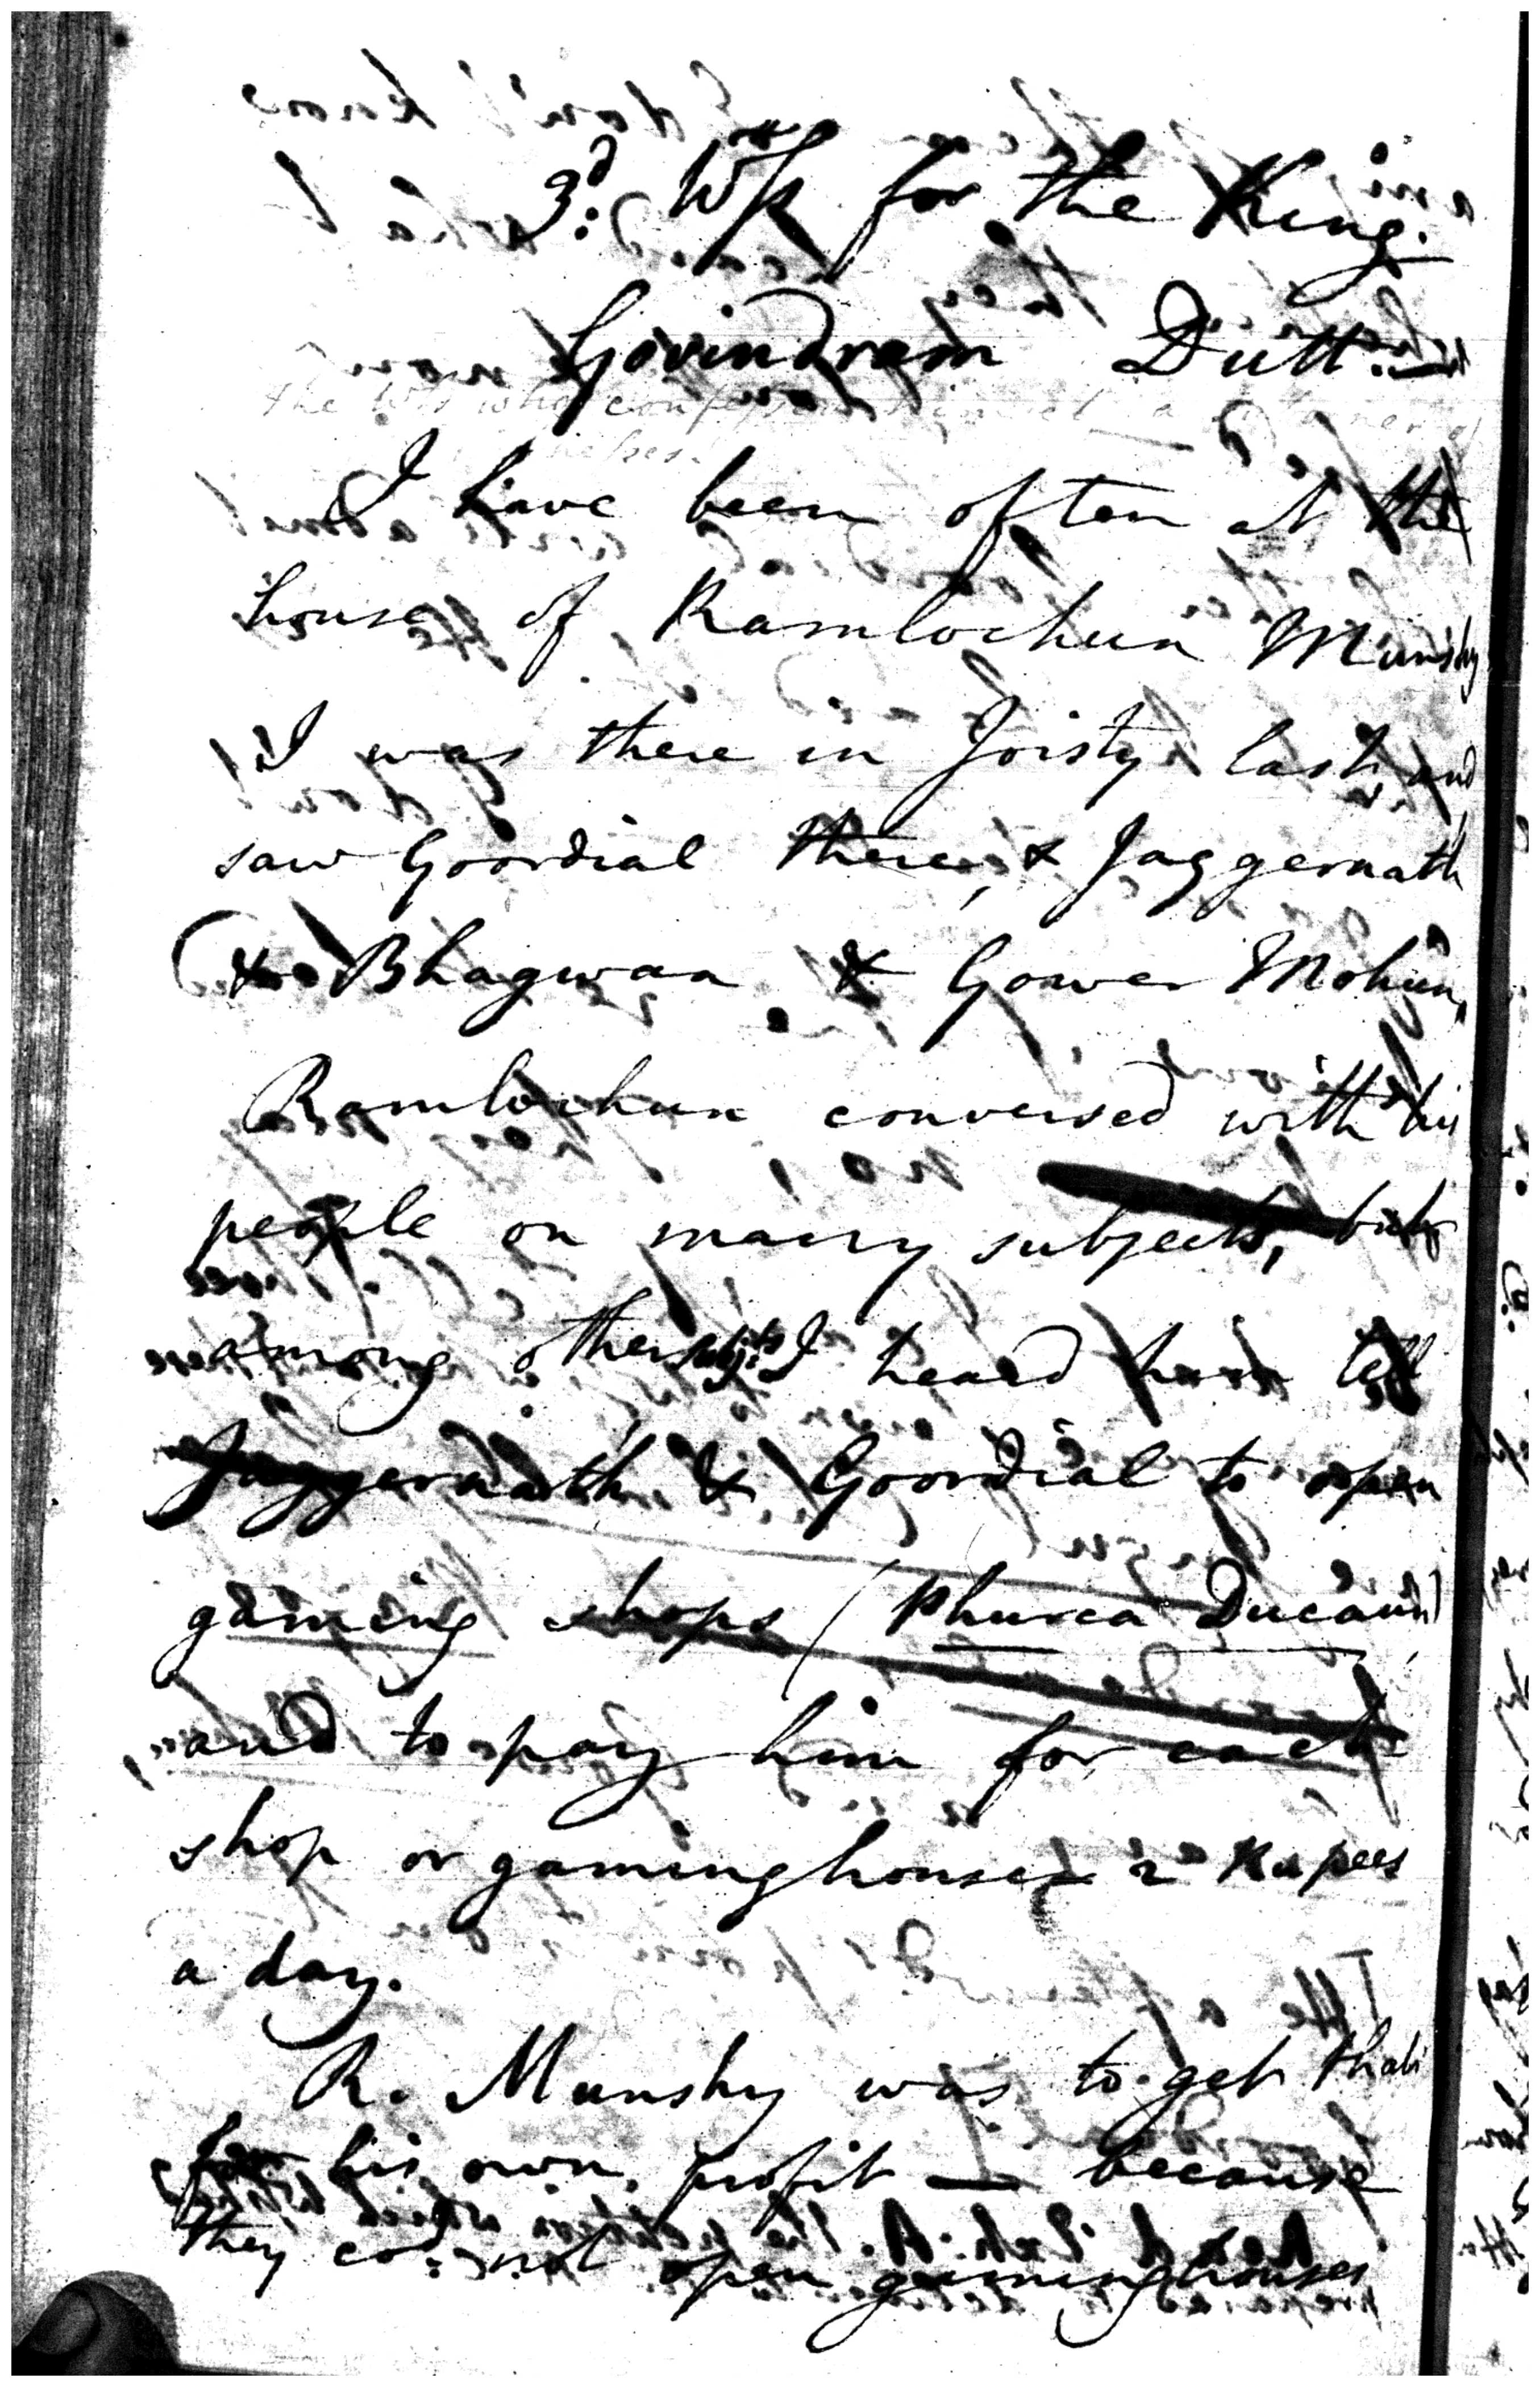 3d. Wss for the King.
Govindram Dutt.
the Wss who
I have been often at the
house of Ramlochun Munshy
I was there in Joisty last, and
saw Goordial there, & Jaggernath
& Bhagwan & Gower Mohun,
Ramlochun conversed with his
people on many subjects, but
among other subjts I heard him tell
Jaggernath & Goordial to open
gaming shops (Phurea Ducaun)
and to pay him for each
shop or gaminghouse 2 Rupees
a day.
R. Munshy was to get that
for his own profit — because
they cod. not open gaminghouses